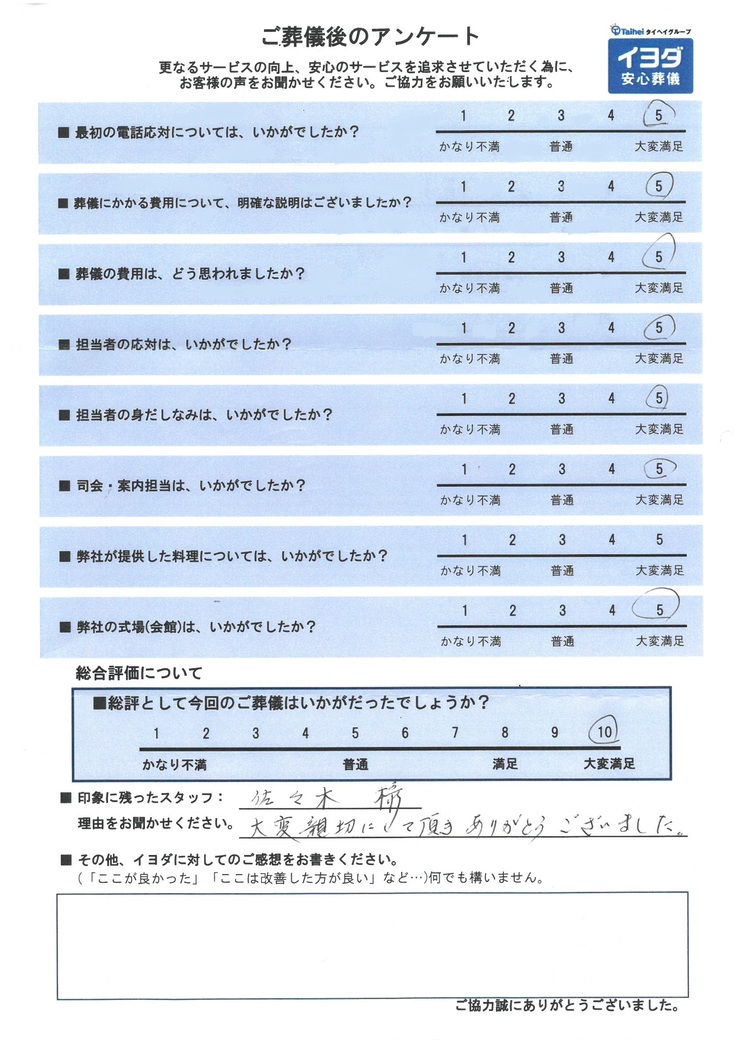 ご葬儀後のアンケート
Taihei タイヘイグループ
イヨダ
安心葬儀
更なるサービスの向上、安心のサービスを追求させていただく為に、
お客様の声をお聞かせください。ご協力をお願いいたします。
■ 最初の電話応対については、いかがでしたか？ 1 2 3 4 5
かなり不満 普通 大変満足
■ 葬儀にかかる費用について、明確な説明はございましたか？ 1 2 3 4 5
かなり不満 普通 大変満足
■ 葬儀の費用は、どう思われましたか？ 1 2 3 4 5
かなり不満 普通 大変満足
■ 担当者の応対は、いかがでしたか？ 1 2 3 4 5
かなり不満 普通 大変満足
■ 担当者の身だしなみは、いかがでしたか？ 1 2 3 4 5
かなり不満 普通 大変満足
■ 司会・案内担当は、いかがでしたか？ 1 2 3 4 5
かなり不満 普通 大変満足
■ 弊社が提供した料理については、いかがでしたか？ 1 2 3 4 5
かなり不満 普通 大変満足
■ 弊社の式場(会館)は、いかがでしたか？ 1 2 3 4 5
かなり不満 普通 大変満足
総合評価について
■総評として今回のご葬儀はいかがだったでしょうか？
1 2 3 4 5 6 7 8 9 10
かなり不満 普通 満足 大変満足
■ 印象に残ったスタッフ： 佐々木 様
理由をお聞かせください。 大変親切にして頂きありがとうございました。
■ その他、イヨダに対してのご感想をお書きください。
(「ここが良かった」「ここは改善した方が良い」など…)何でも構いません。
ご協力誠にありがとうございました。